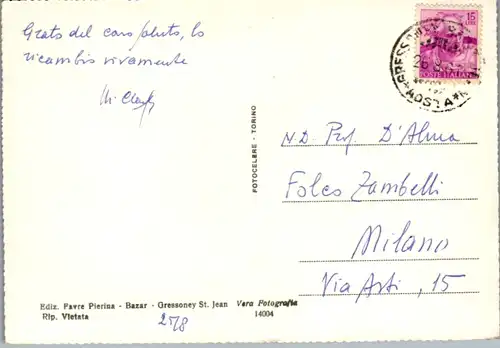 Grato del caro saluto, lo
ricambio vivamente
N.D. Prof. D'Alma
Folco Zambelli
Milano
Via Asti, 15
FOTOCELERE - TORINO
15
LIRE
POSTE ITALIANE
GRESSONEY
AOSTA
Ediz. Favre Pierina - Bazar - Gressoney St. Jean Vera Fotografia
Rip. Vietata 14004
25/8